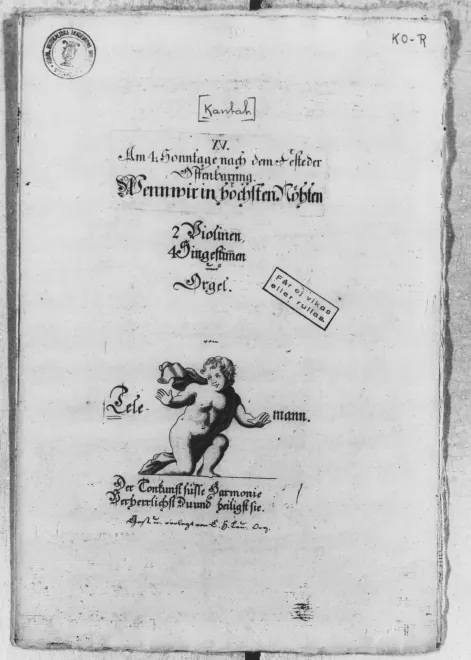 KO-R
[Kantat]
XV.
Am 4. Sonntage nach dem Feste der
Offenbarung.
Wenn wir in höchsten Nöhten
2 Violinen,
4 Singestimen
und
Orgel.
Får ej vikas
eller rullas.
von
Tele- mann.
Der Tonkunst süsse Harmonie
Verherrlichst Du und heiligst sie.